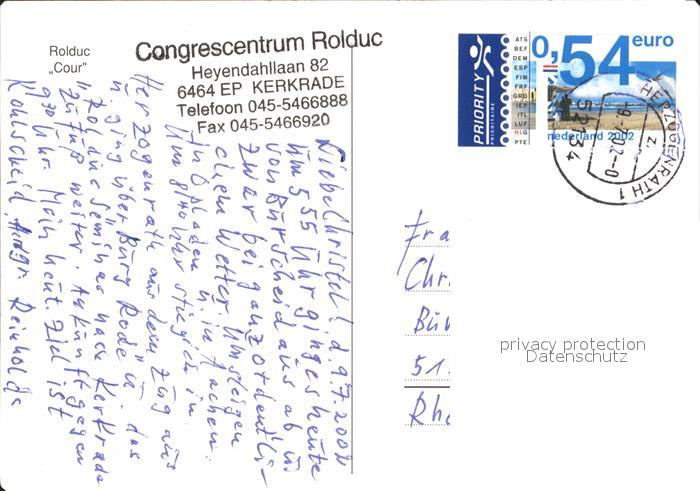 Rolduc
„Cour"
Congrescentrum Rolduc
Heyendahllaan 82
6464 EP KERKRADE
Telefoon 045-5466888
Fax 045-5466920
Liebe Christel! d. 9.7.2002
Um 5 55 Uhr ging es heute
von Burscheid aus ab u.
zwar bei ganz ordentli-
chem Wetter. Umsteigen
in Opladen u. in Aachen.
Um 8 40 Uhr stieg ich in
Herzogenrath aus dem Zug aus
u. ging über Burg Rode u. das
"Rolduc" seminar nach Kerkrade
zu Fuß weiter. Ankunft gegen
9 30 Uhr. Mein heut. Ziel ist
Kohlscheid. Reinhold
PRIORITY
PRIORITAIRE
ATS
BEF
DEM
ESP
FIM
FRF
GRD
IEP
ITL
LUF
NLG
PTE
0,54 euro
nederland 2002
HERZOGENRATH 1
52134
Fra
Chr
Bur
51.
Rhe
privacy protection
Datenschutz